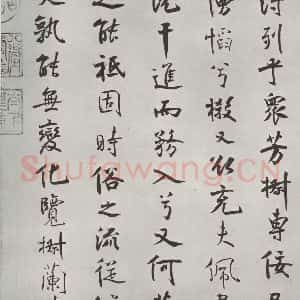 得列乎衆芳椒專佞
慆兮樧又欲充夫佩
干進而務入兮又何芳
之能祗固時俗之流從
又孰能無變化覽椒蘭
Shufawang.CN